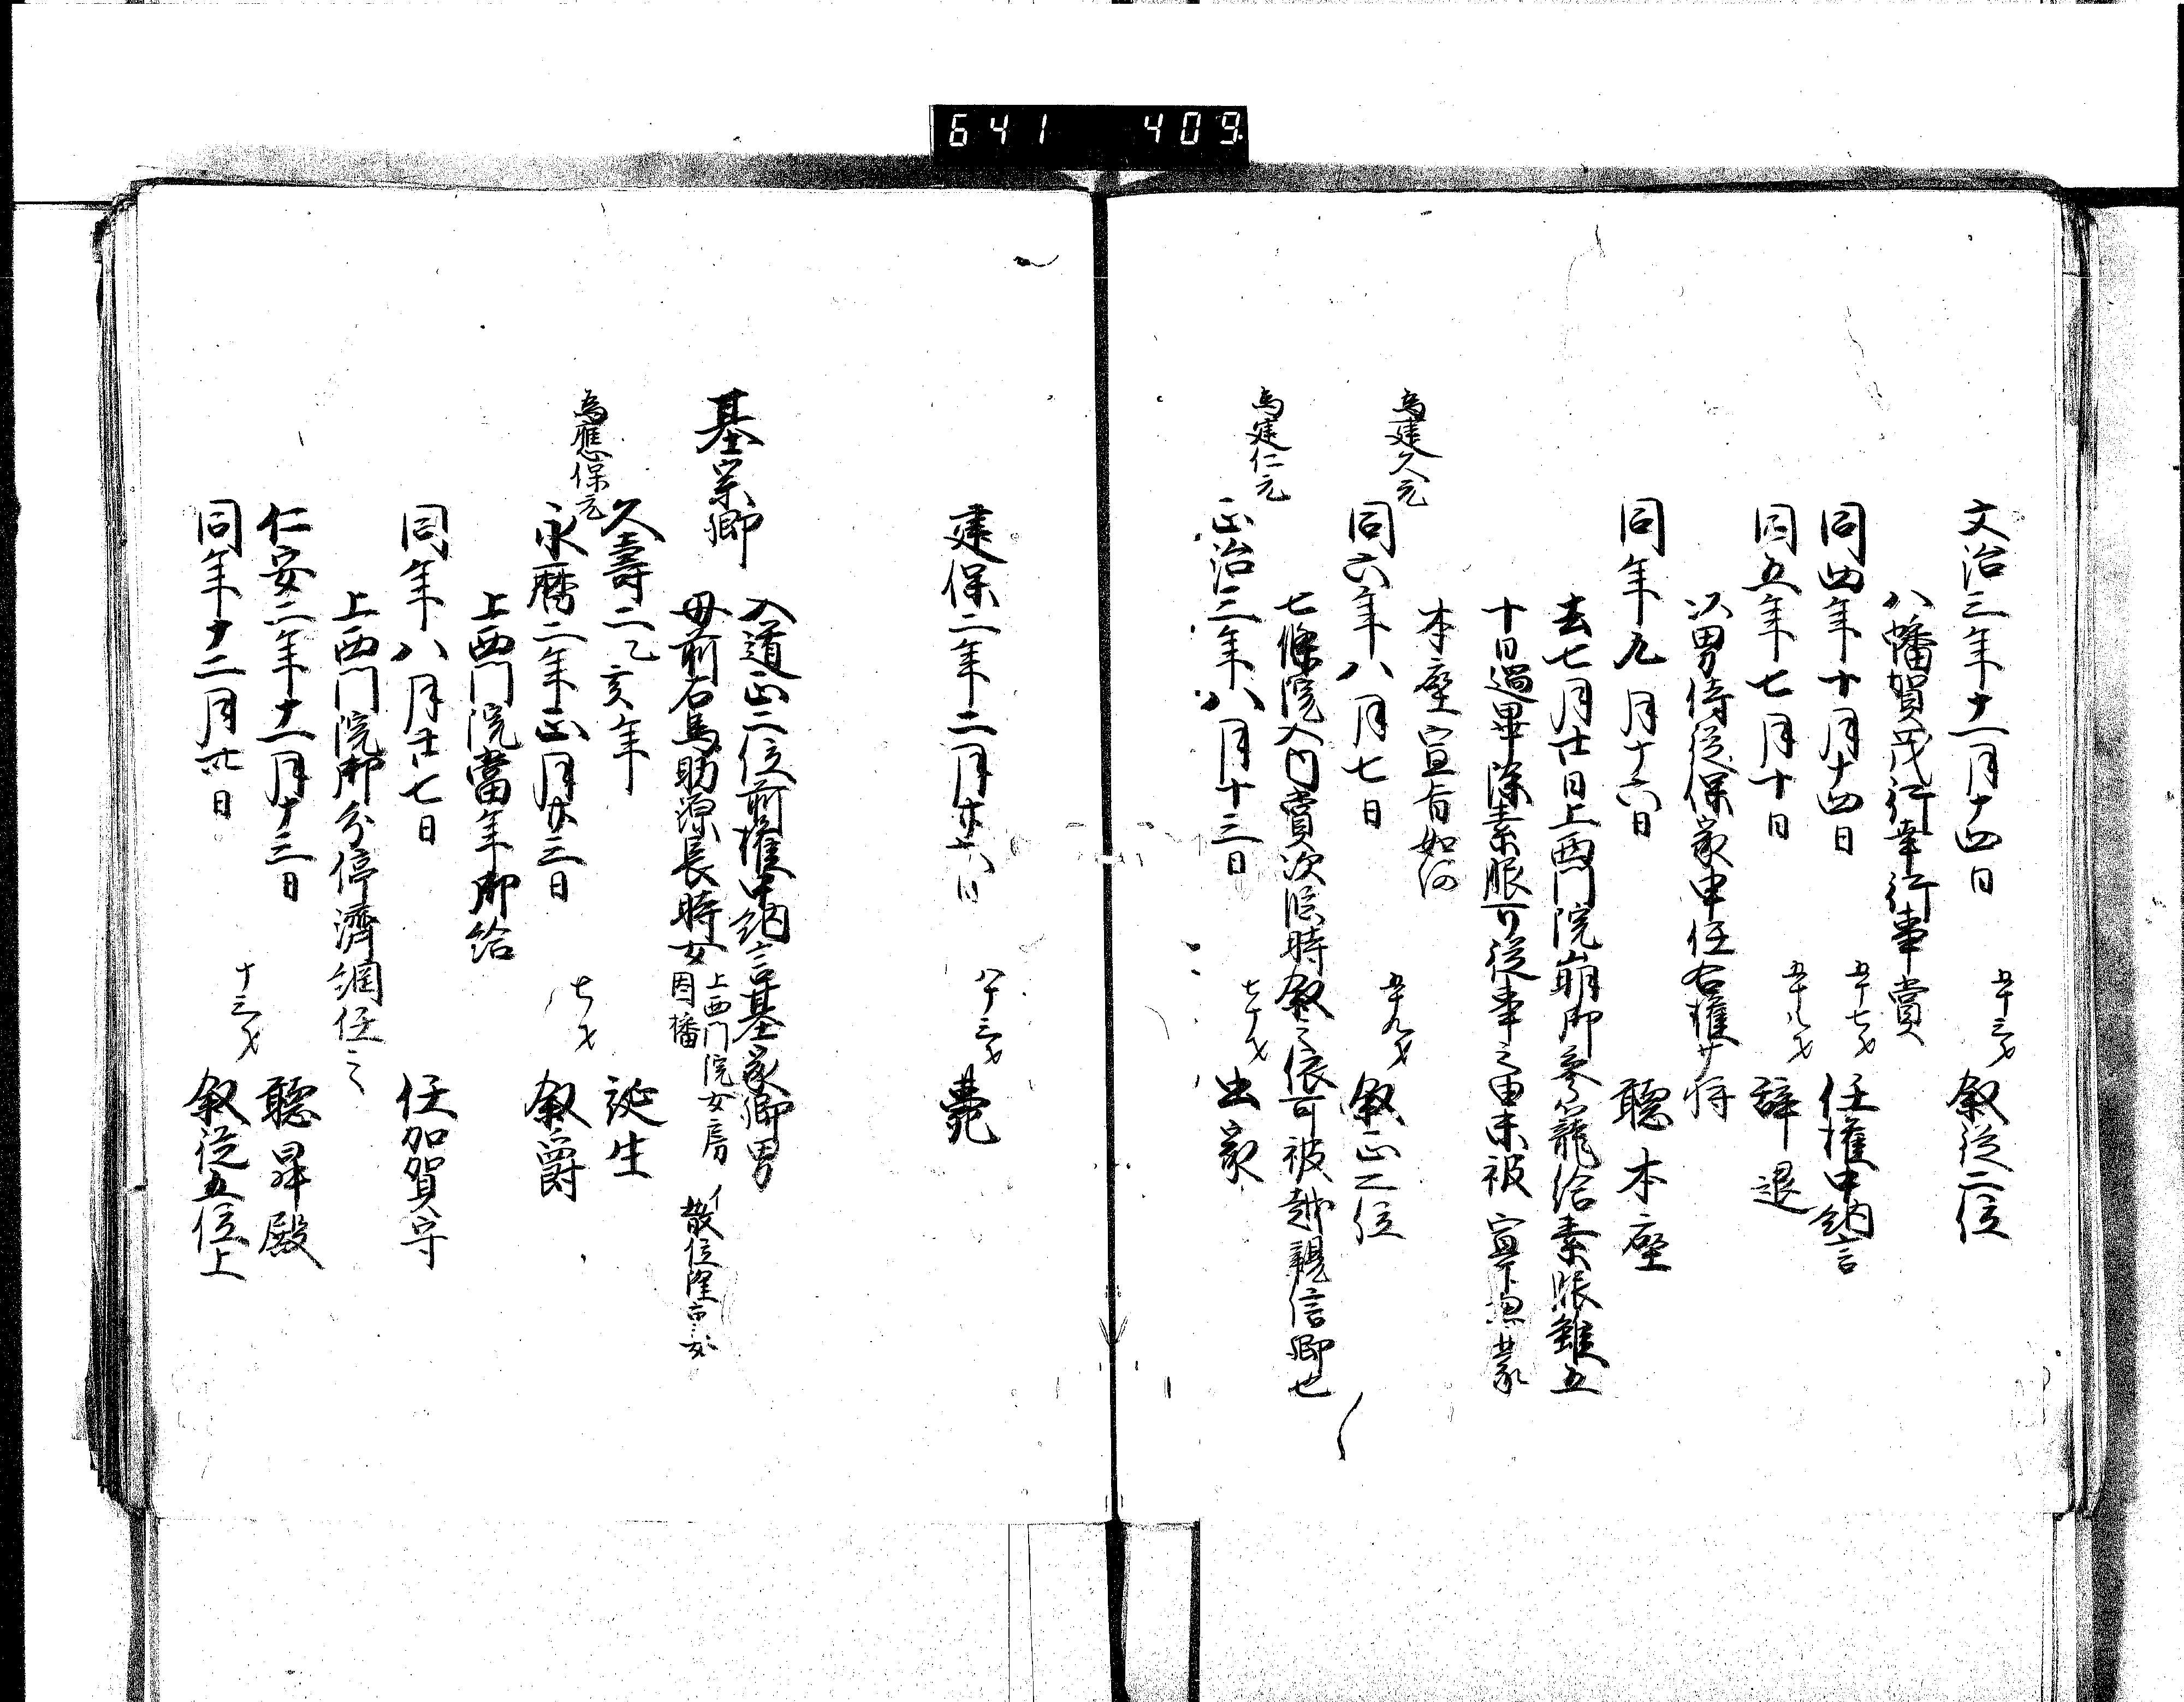 641 409
文治三年十一月十四日 五十三才 叙従二位
八幡賀茂行幸行事賞
同四年十月十四日 五十七才 任権中納言
同五年七月十日 五十八才 辞退
以男侍従保家申任右権少将
同年九月十六日 聴本座
去七月廿日上西門院崩御参籠給素服雖五
十日過畢除素服可従事之由未被宣下想蒙
本座宣旨如何
為建久元
同六年八月七日 五十九才 叙正二位
七條院入内賞次臨時叙之依可被越親信卿也
為建仁元
正治三年八月十三日 七十才 出家
建保二年二月廿六日 八十三才 薨
基宗卿 入道正二位前権中納言基家卿男
母前右馬助源長時女 上西門院女房因幡 イ散位隆宗女
久壽二乙亥年 誕生
為應保元
永暦二年正月廿三日 七才 叙爵
上西門院當年御給
同年八月廿七日 任加賀守
上西門院御分停濟綱任之
仁安二年十一月十三日 聴昇殿
同年十二月卅日 十三才 叙従五位上